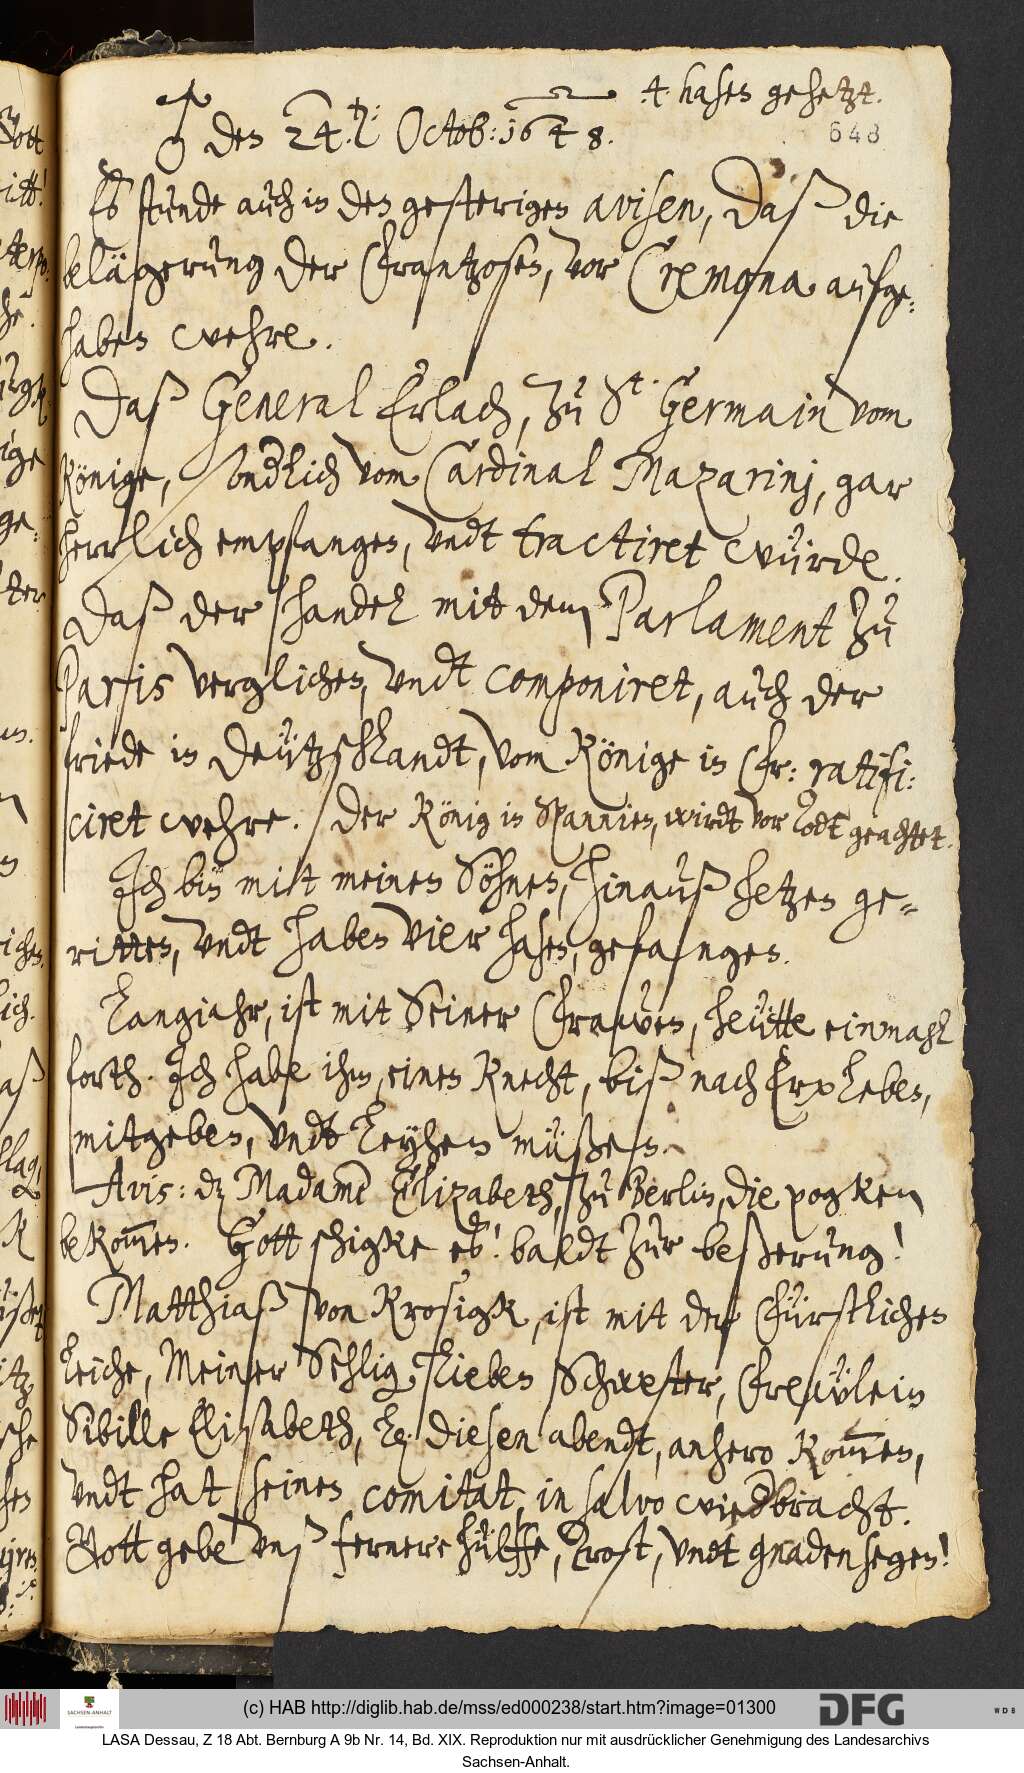 4. hasen gehetzt.
648
♂ den 24.ten: Octob: 1648.
Es stunde auch in den gesterigen avisen, Daß die
belägerung der Frantzosen, vor Cremona aufge-
haben wehre.
Daß General Erlach, zu St. Germain vom
Könige, sondlich vom Cardinal Mazarinj, gar
herrlich empfangen, undt tractiret würde.
Daß der handel mit dem Parlament zu
Paris verglichen, undt componiret, auch der
friede in Deützschlandt, vom Könige in Fr: ratifi-
ciret wehre. Der König in Spannien, wirdt vor Todt geachtet.
Ich bin mitt meinen Söhnen, hinauß hetzen ge-
ritten, undt haben vier hasen, gefangen.
Langiahr, ist mit Seiner Frawen, heütte einmahl
forth. Ich habe ihm, einen Knecht, biß nach Erxleben,
mitgeben, undt leyhen müßen.
Avis: dz Madame Elizabeth, zu Berlin, die pogken
bekommen. Gott schigke es! baldt zur beßerung!
Matthiaß von Krosigk, ist mit der Fürstlichen
leiche, Meiner Sehlig: lieben Schwester, Frewlein
Sibille Elisabeth, diesen abendt, anhero kommen,
undt hat seinen comitat, in salvo wiedbracht.
Gott gebe unß fernere hülffe, Trost, undt gnadensegen!
(c) HAB http://diglib.hab.de/mss/ed000238/start.htm?image=01300
SACHSEN-ANHALT
DFG
WDB
LASA Dessau, Z 18 Abt. Bernburg A 9b Nr. 14, Bd. XIX. Reproduktion nur mit ausdrücklicher Genehmigung des Landesarchivs
Sachsen-Anhalt.